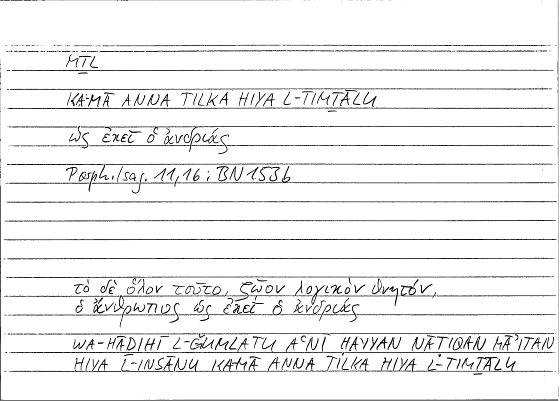 MṮL
KA-MĀ ANNA TILKA HIYA L-TIMṮĀLU
ὡς ἐκεῖ ὁ ἀνδριάς
Porph./sag. 11,16; BN 153b
τὸ δὲ ὅλον τοῦτο, ζῷον λογικὸν θνητόν,
ὁ ἄνθρωπος ὡς ἐκεῖ ὁ ἀνδριάς
WA-HĀḎIHĪ L-ǦUMLATU AʿNĪ ḤAYYAN NĀṬIQAN MĀʾITAN
HIYA L-INSĀNU KAMĀ ANNA TILKA HIYA L-TIMṮĀLU